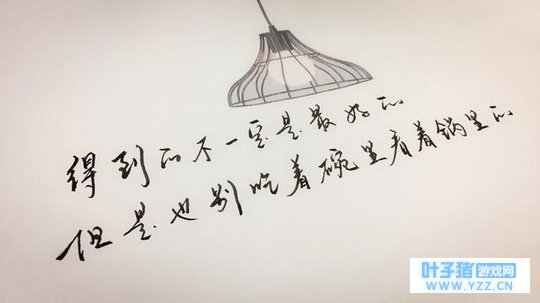 得到的不一定是最好的
但是也别吃着碗里看着锅里的
叶子猪游戏网
WWW.YZZ.CN